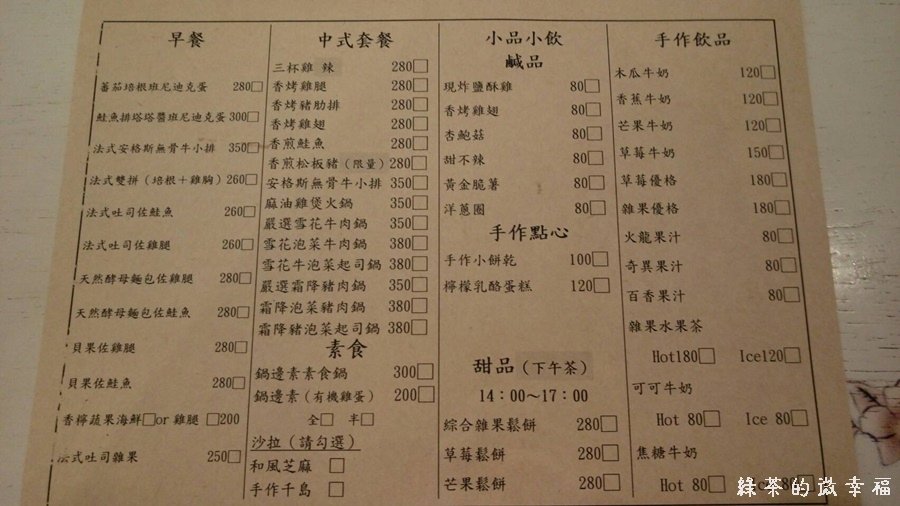 早餐
蕃茄培根班尼迪克蛋 280□
鮭魚排塔塔醬班尼迪克蛋 300□
法式安格斯無骨牛小排 350□
法式雙拼(培根+雞胸) 260□
法式吐司佐鮭魚 260□
法式吐司佐雞腿 260□
天然酵母麵包佐雞腿 280□
天然酵母麵包佐鮭魚 280□
貝果佐雞腿 280□
貝果佐鮭魚 280□
香檸蔬果海鮮□or 雞腿□200
法式吐司雜果 250□
中式套餐
三杯雞 辣 280□
香烤雞腿 280□
香烤豬肋排 280□
香烤雞翅 280□
香煎鮭魚 280□
香煎松板豬(限量) 280□
安格斯無骨牛小排 350□
麻油雞煲火鍋 350□
嚴選雪花牛肉鍋 350□
雪花泡菜牛肉鍋 380□
雪花牛泡菜起司鍋 380□
嚴選霜降豬肉鍋 350□
霜降泡菜豬肉鍋 380□
霜降豬泡菜起司鍋 380□
素食
鍋邊素素食鍋 300□
鍋邊素(有機雞蛋) 200□
全□ 半□
沙拉(請勾選)
和風芝麻 □
手作千島 □
小品小飲
鹹品
現炸鹽酥雞 80□
香烤雞翅 80□
杏鮑菇 80□
甜不辣 80□
黃金脆薯 80□
洋蔥圈 80□
手作點心
手作小餅乾 100□
檸檬乳酪蛋糕 120□
甜品(下午茶)
14:00~17:00
綜合雜果鬆餅 280□
草莓鬆餅 280□
芒果鬆餅 280□
手作飲品
木瓜牛奶 120□
香蕉牛奶 120□
芒果牛奶 120□
草莓牛奶 150□
草莓優格 180□
雜果優格 180□
火龍果汁 80□
奇異果汁 80□
百香果汁 80□
雜果水果茶
Hot180□ Ice120□
可可牛奶
Hot 80□ Ice 80□
焦糖牛奶
Hot 80□ Ice 80□
綠茶的微幸福